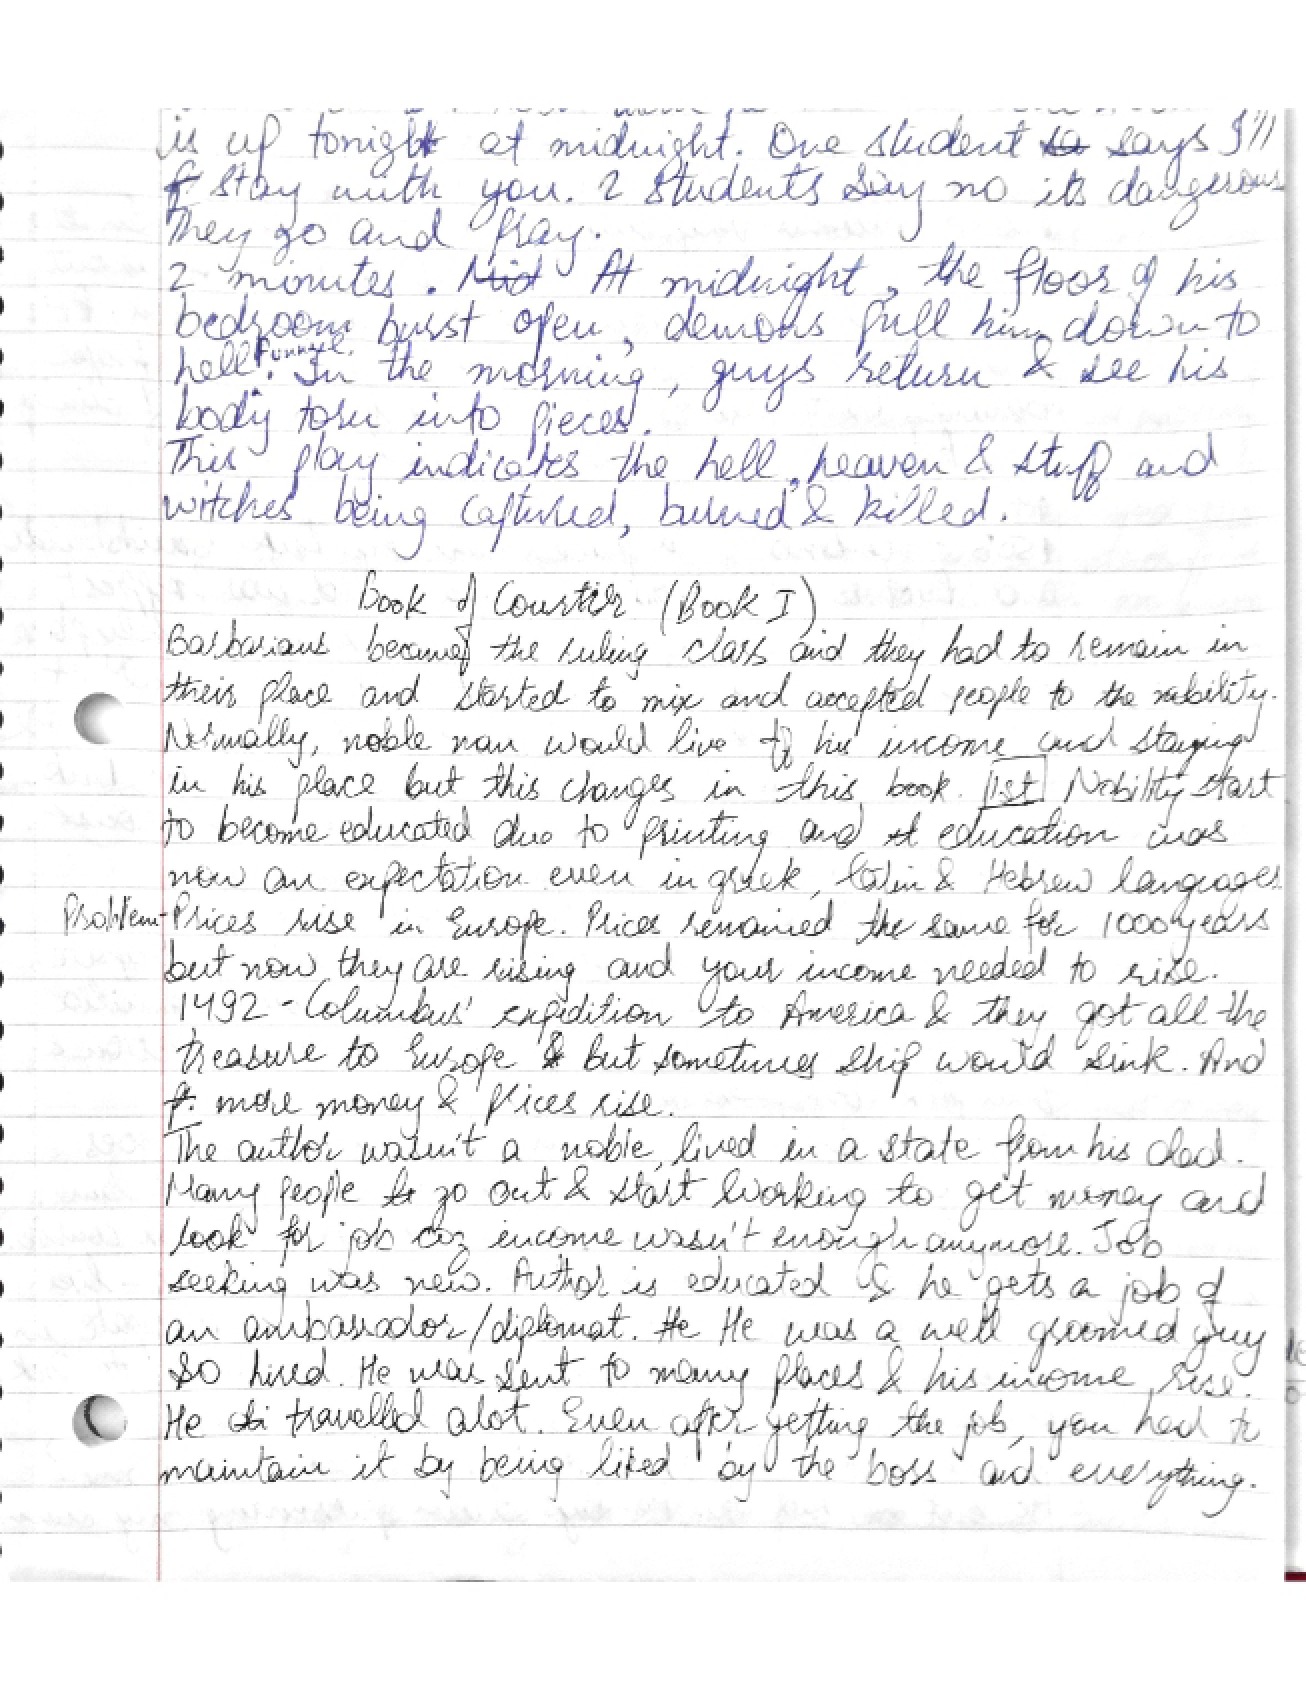 is up tonight at midnight. One student says I'll
stay with you. 2 students say no its dangerous
They go and pray.
2 minutes. Mid At midnight, the floor of his
bedroom burst open, demons pull him down to
hell funnel. In the morning, guys return & see his
body torn into pieces.
This play indicates the hell, heaven & stuff and
witches being captured, burned & killed.
Book of Courtier (Book I)
Barbarians became the ruling class and they had to remain in
their place and started to mix and accepted people to the nobility.
Normally, noble man would live of his income and staying
in his place but this changes in this book. 1st Nobility start
to become educated due to printing and education was
now an expectation even in greek, latin & Hebrew languages.
Problem - Prices rise in Europe. Prices remained the same for 1000 years
but now they are rising and your income needed to rise.
1492 - Columbus' expedition to America & they got all the
treasure to Europe & but sometimes ship would sink. And
more money & Prices rise.
The author wasn't a noble, lived in a state from his dad.
Many people go out & start working to get money and
look for job coz income wasn't enough anymore. Job
seeking was new. Author is educated & he gets a job of
an ambassador/diplomat. He He was a well groomed guy
so hired. He was sent to many places & his income rise.
He travelled alot. Even after getting the job, you had to
maintain it by being liked by the boss and everything.